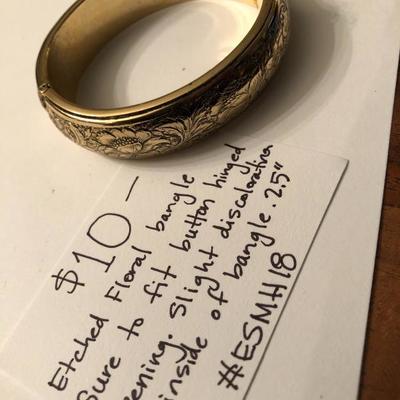 $10-
Etched Floral bangle
Sure to fit button hinged
opening. Slight discoloration
inside of bangle. 2.5"
#ESMH18